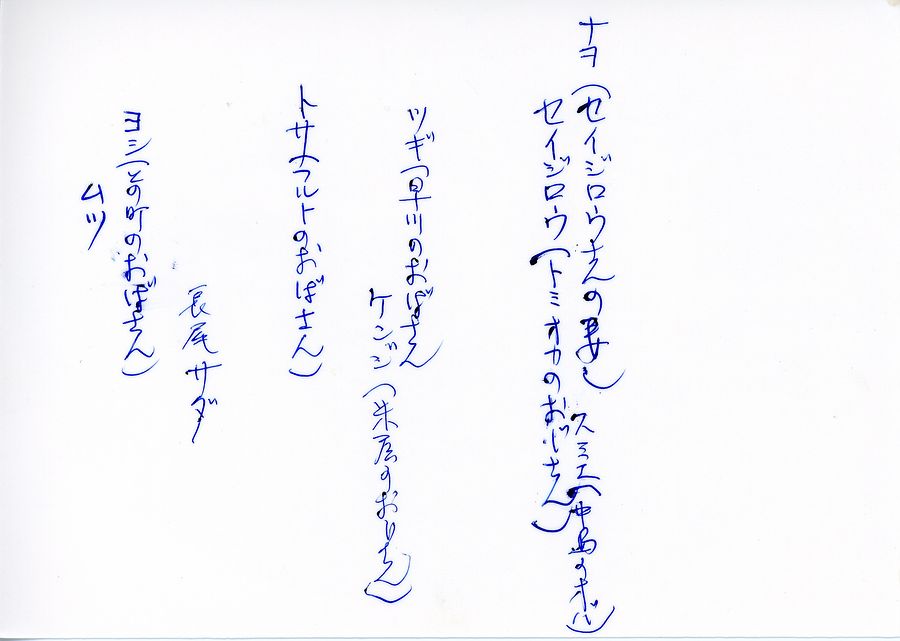 ナヲ(セイジロウさんの妻)
スミエ(中島のオバ)
セイジロウ(トミオカのおじさん)
ツギ(早川のおばさん
ケンジ(米屋のおじさん)
トサ(フルトのおばさん)
長尾サダ
ヨシ(との町のおばさん)
ムツ